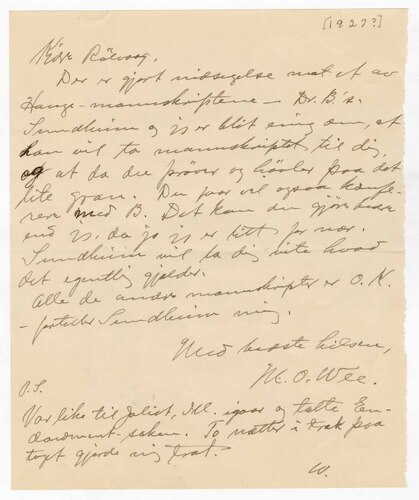 [1927?]
Kjære Rölvaag,
Der er gjort indsigelse mot et av
Hauge-manuskriptene — Dr. B's.
Sundheim og jeg er blit enig om, at
han vil ta manuskriptet til dig,
og at da du prøver og høvler paa det
lite gran. Du faar vel ogsaa konfe-
rere med B. Det kan du gjöre bedre
end jeg, da jo jeg er litt for nær.
Sundheim vil la dig vite hvad
det egentlig gjelder.
Alle de andre manuskripter er O. K.
- forteller Sundheim mig.
Med bedste hilsen,
M. O. Wee.
P.S.
Var like til Joliet, Ill. igaar og talte En-
dowment-saken. To nætter i træk paa
togt gjorde mig træt.
W.